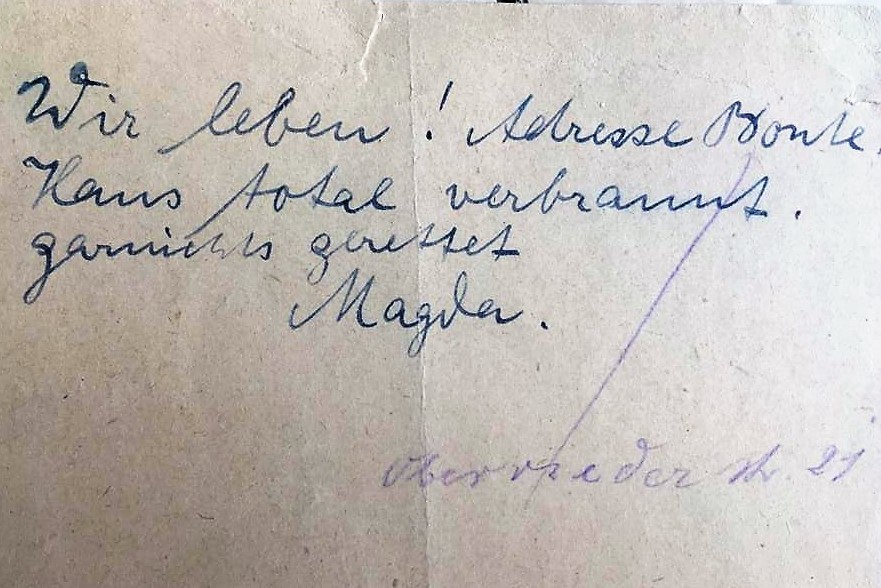 Wir leben! Adresse Bonte.
Haus total verbrannt.
garnichts gerettet
Magda.
Oberrieder Str. 21